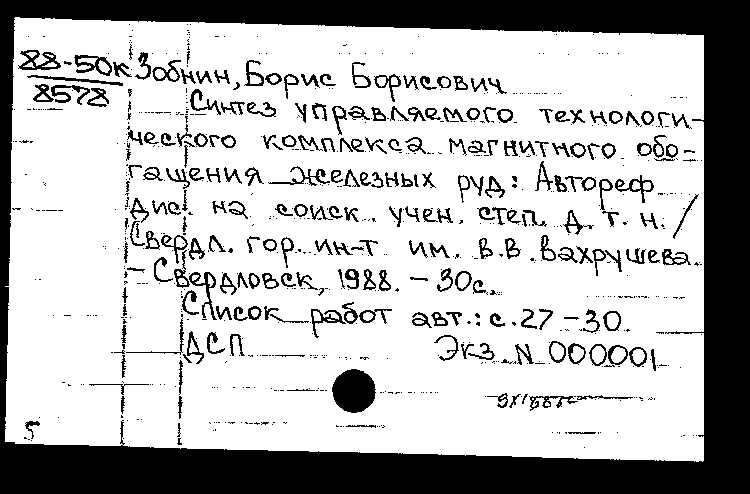 88-50к Зобнин, Борис Борисович
8578
Синтез управляемого технологи-
ческого комплекса магнитного обо-
гащения железных руд: Автореф.
дис. на соиск. учен. степ. д. т. н. /
Свердл. гор. ин-т им. В.В. Вахрушева.
- Свердловск, 1988. - 30с.
Список работ авт.: с. 27-30.
ДСП Экз. N 000001
5